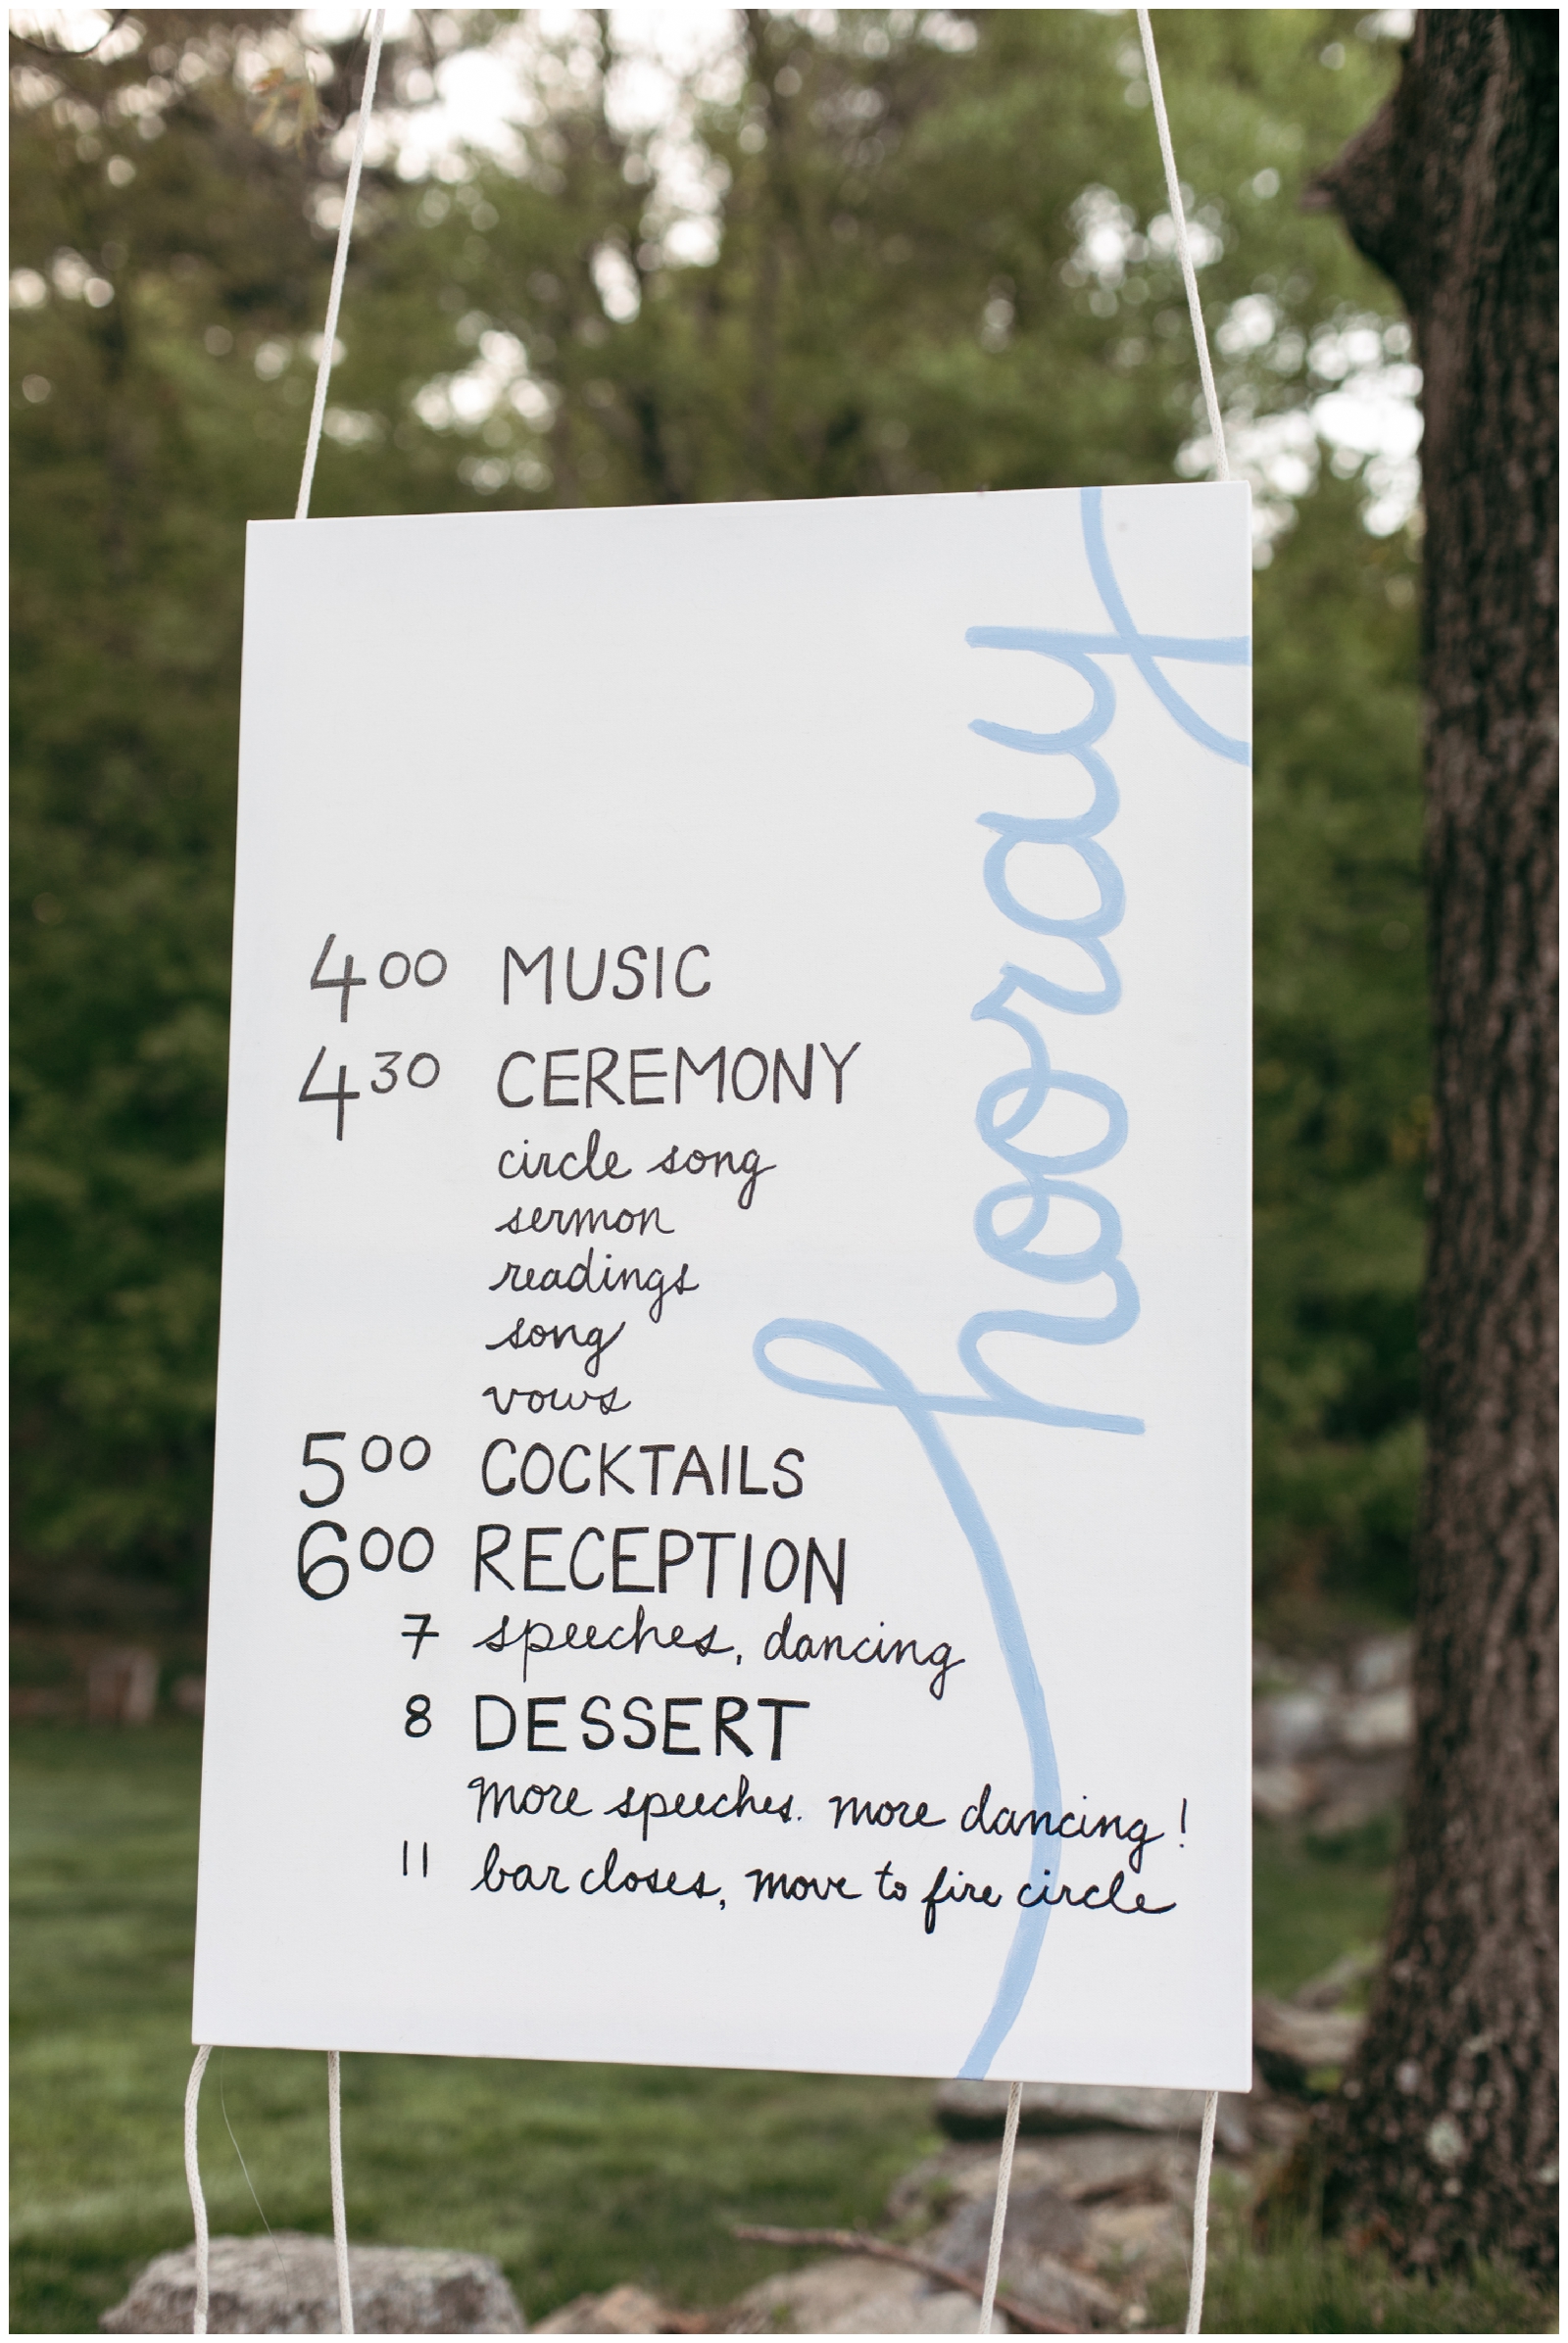 hooray
4 00 MUSIC
4 30 CEREMONY
circle song
sermon
readings
song
vows
5 00 COCKTAILS
6 00 RECEPTION
7 speeches, dancing
8 DESSERT
more speeches. more dancing!
11 bar closes, move to fire circle